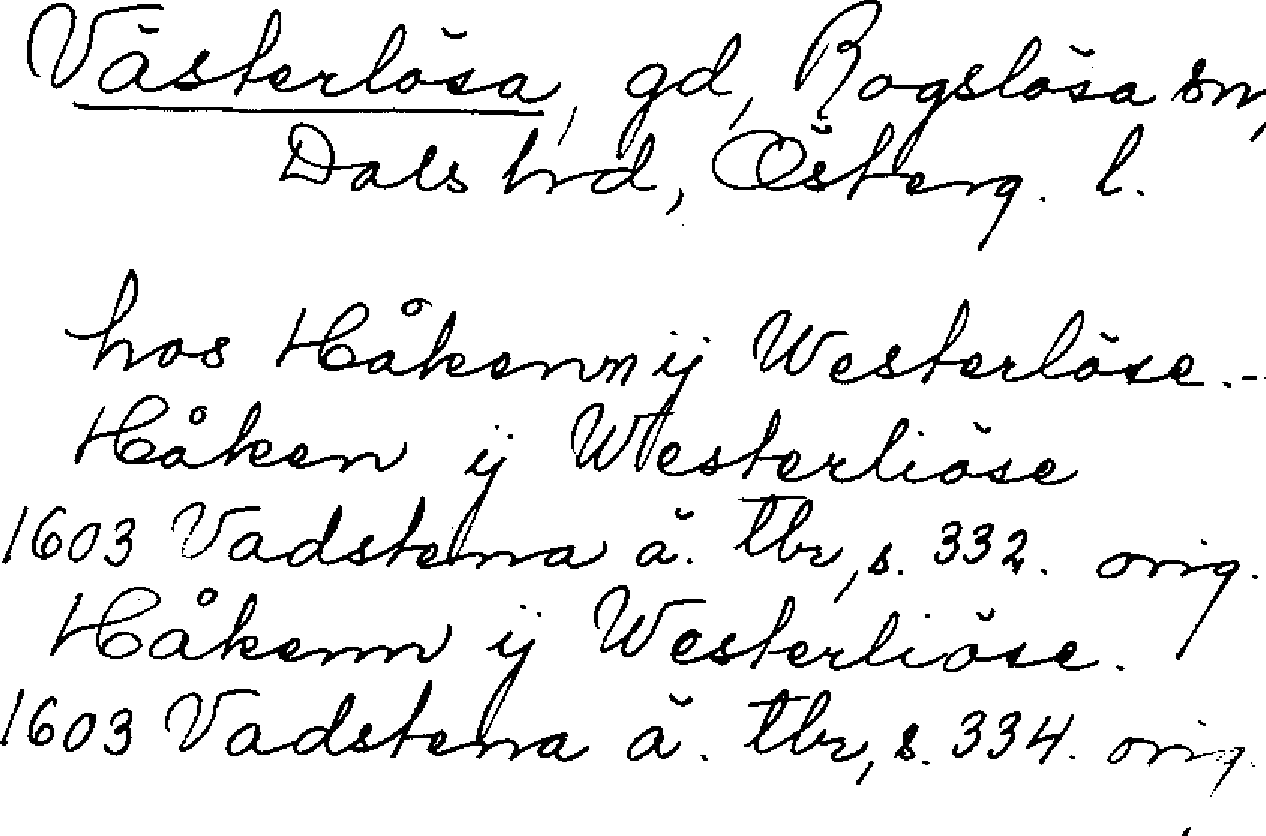 Västerlösa, gd, Rogslösa sn,
Dals hrd, Österg. l.
hos Håkenn ij Westerlöse.--
Håken ij Westerliöse
1603 Vadstena ä. tbr, s. 332. orig.
Håkenn ij Westerliöse.
1603 Vadstena ä. tbr, s. 334. orig.